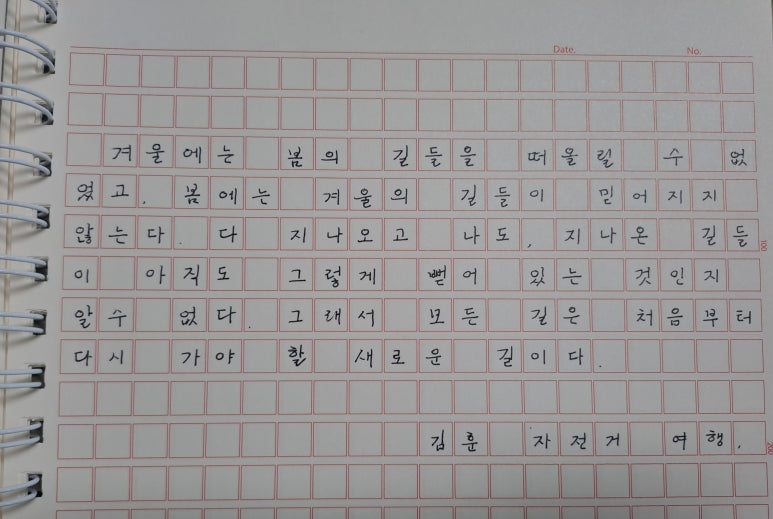 Date. No.
겨울에는 봄의 길들을 떠올릴 수 없
었고, 봄에는 겨울의 길들이 믿어지지
않는다. 다 지나오고 나도, 지나온 길들
이 아직도 그렇게 뻗어 있는 것인지
알수 없다. 그래서 모든 길은 처음부터
다시 가야 할 새로운 길이다.
김훈 자전거 여행.
100